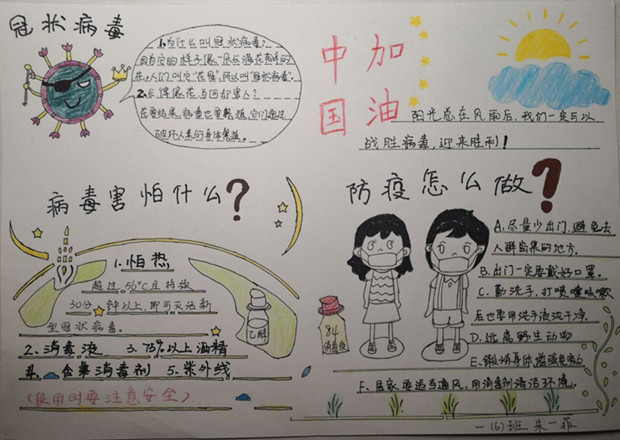 冠状病毒
1.为什么叫冠状病毒?
因为它的样子像一朵盛开的
花,人们叫它"花冠",所以叫"冠状病毒"。
2.长得像花,为何却害人?
破坏人类的身体
中国
加油
阳光总在风雨后,我们一定可以
战胜病毒,迎来胜利!
病毒害怕什么?
1.怕热
超过56℃且持续
30分钟以上,即可灭活新
型冠状病毒。
乙醚
2.消毒液 3.75%以上酒精
4.含氯消毒剂 5.紫外线
(使用时要注意安全)
防疫怎么做?
A.尽量少出门,避免去
人群密集的地方。
B.出门一定要戴好口罩。
C.勤洗手,打喷嚏咳嗽
后也要用洗手液洗干净
D.远离野生动物
E.锻炼身体增强免疫力
F.居家要适当通风,用消毒剂清洁环境。
84
消毒液
一(6)班 朱一菲